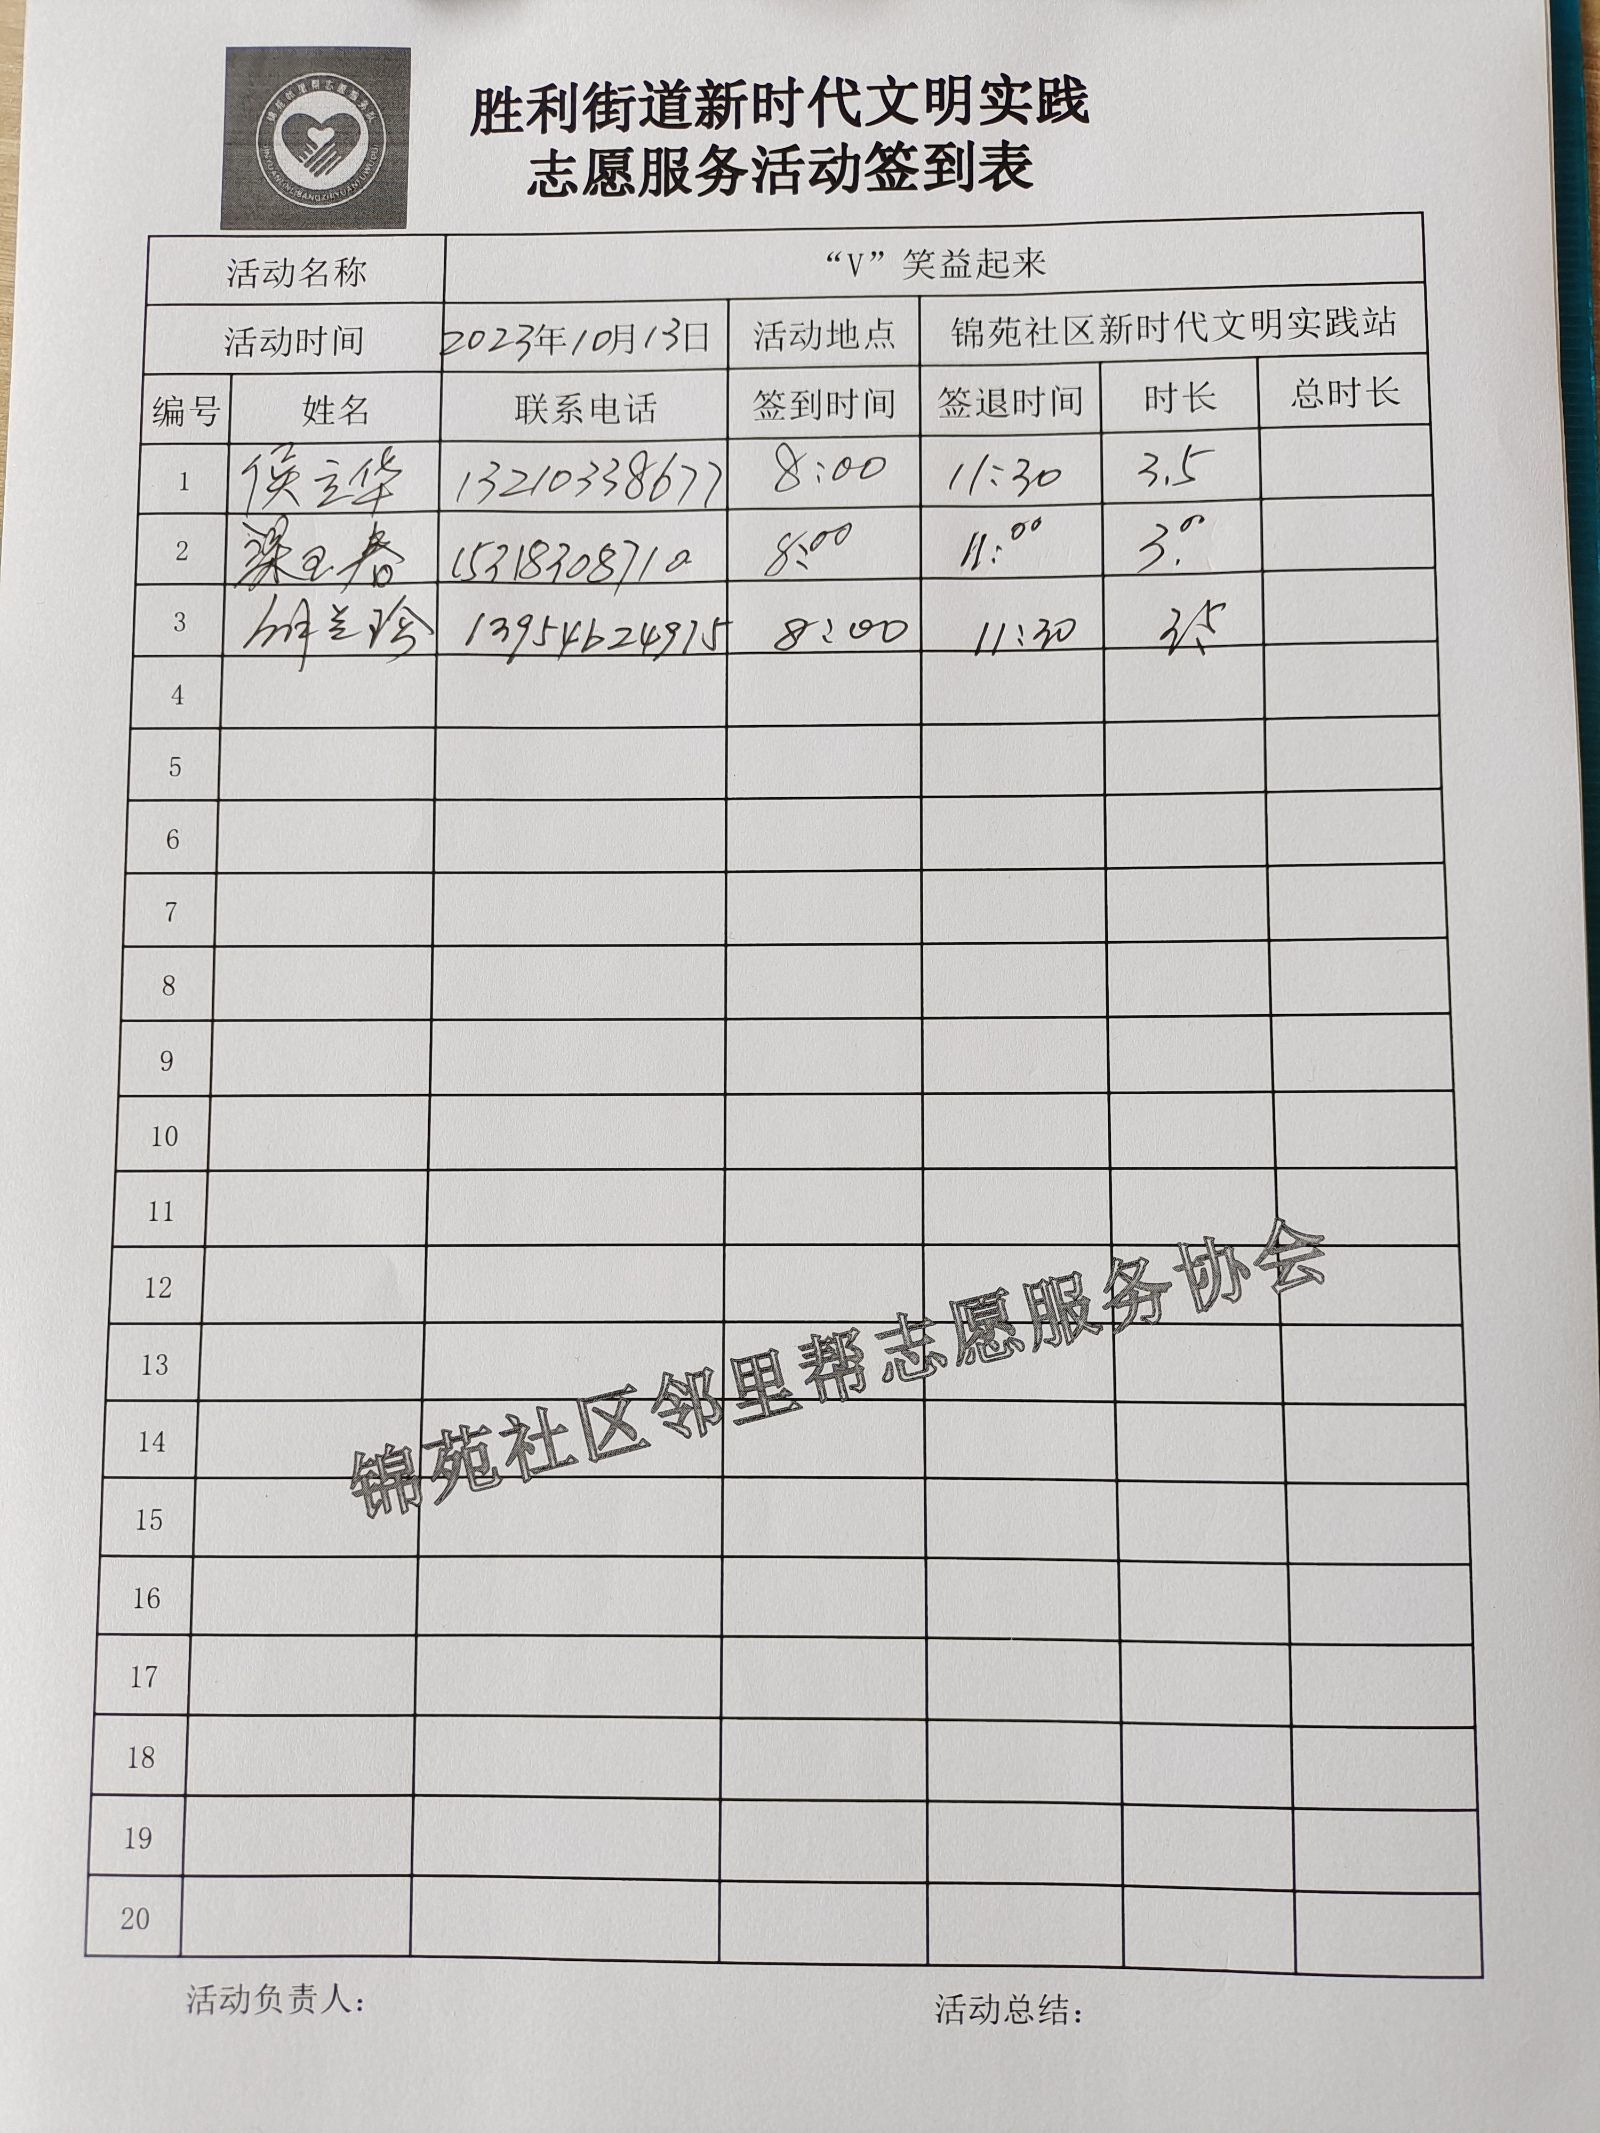 胜利街道新时代文明实践
志愿服务活动签到表
活动名称 “V”笑益起来
活动时间 2023年10月13日 活动地点 锦苑社区新时代文明实践站
编号 姓名 联系电话 签到时间 签退时间 时长 总时长
1 侯立华 13210338677 8:00 11:30 3.5
2 梁玉春 15318308710 8:00 11:00 3.0
3 兰珍 13954624975 8:00 11:30 3.5
4
5
6
7
8
9
10
11
12
13
14
15
16
17
18
19
20
锦苑社区邻里帮志愿服务协会
活动负责人： 活动总结：